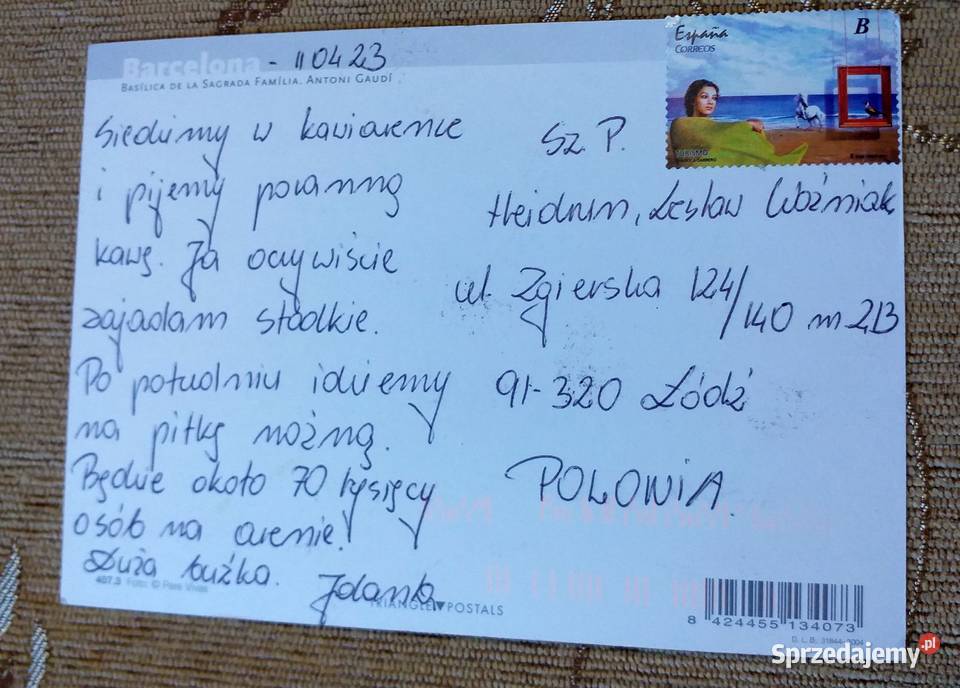 Barcelona - 110423
BASÍLICA DE LA SAGRADA FAMÍLIA. ANTONI GAUDÍ
España
CORREOS
B
TURISMO
Siedzimy w kawiarence
i pijemy poranną
kawę. Ja oczywiście
zajadam słodkie.
Po południu idziemy
na piłkę nożną.
Będzie około 70 tysięcy
osób na arenie!
Duża buźka. Jdanta
Sz. P.
Heidrun, Lesław Woźniak
ul. Zgierska 124/140 m 213
91-320 Łódź
POLONIA
407.3 Foto: © Pere Vivas
TRIANGLE▼POSTALS
8 424455 134073
D. L. B. 31844-2004
Sprzedajemy.pl